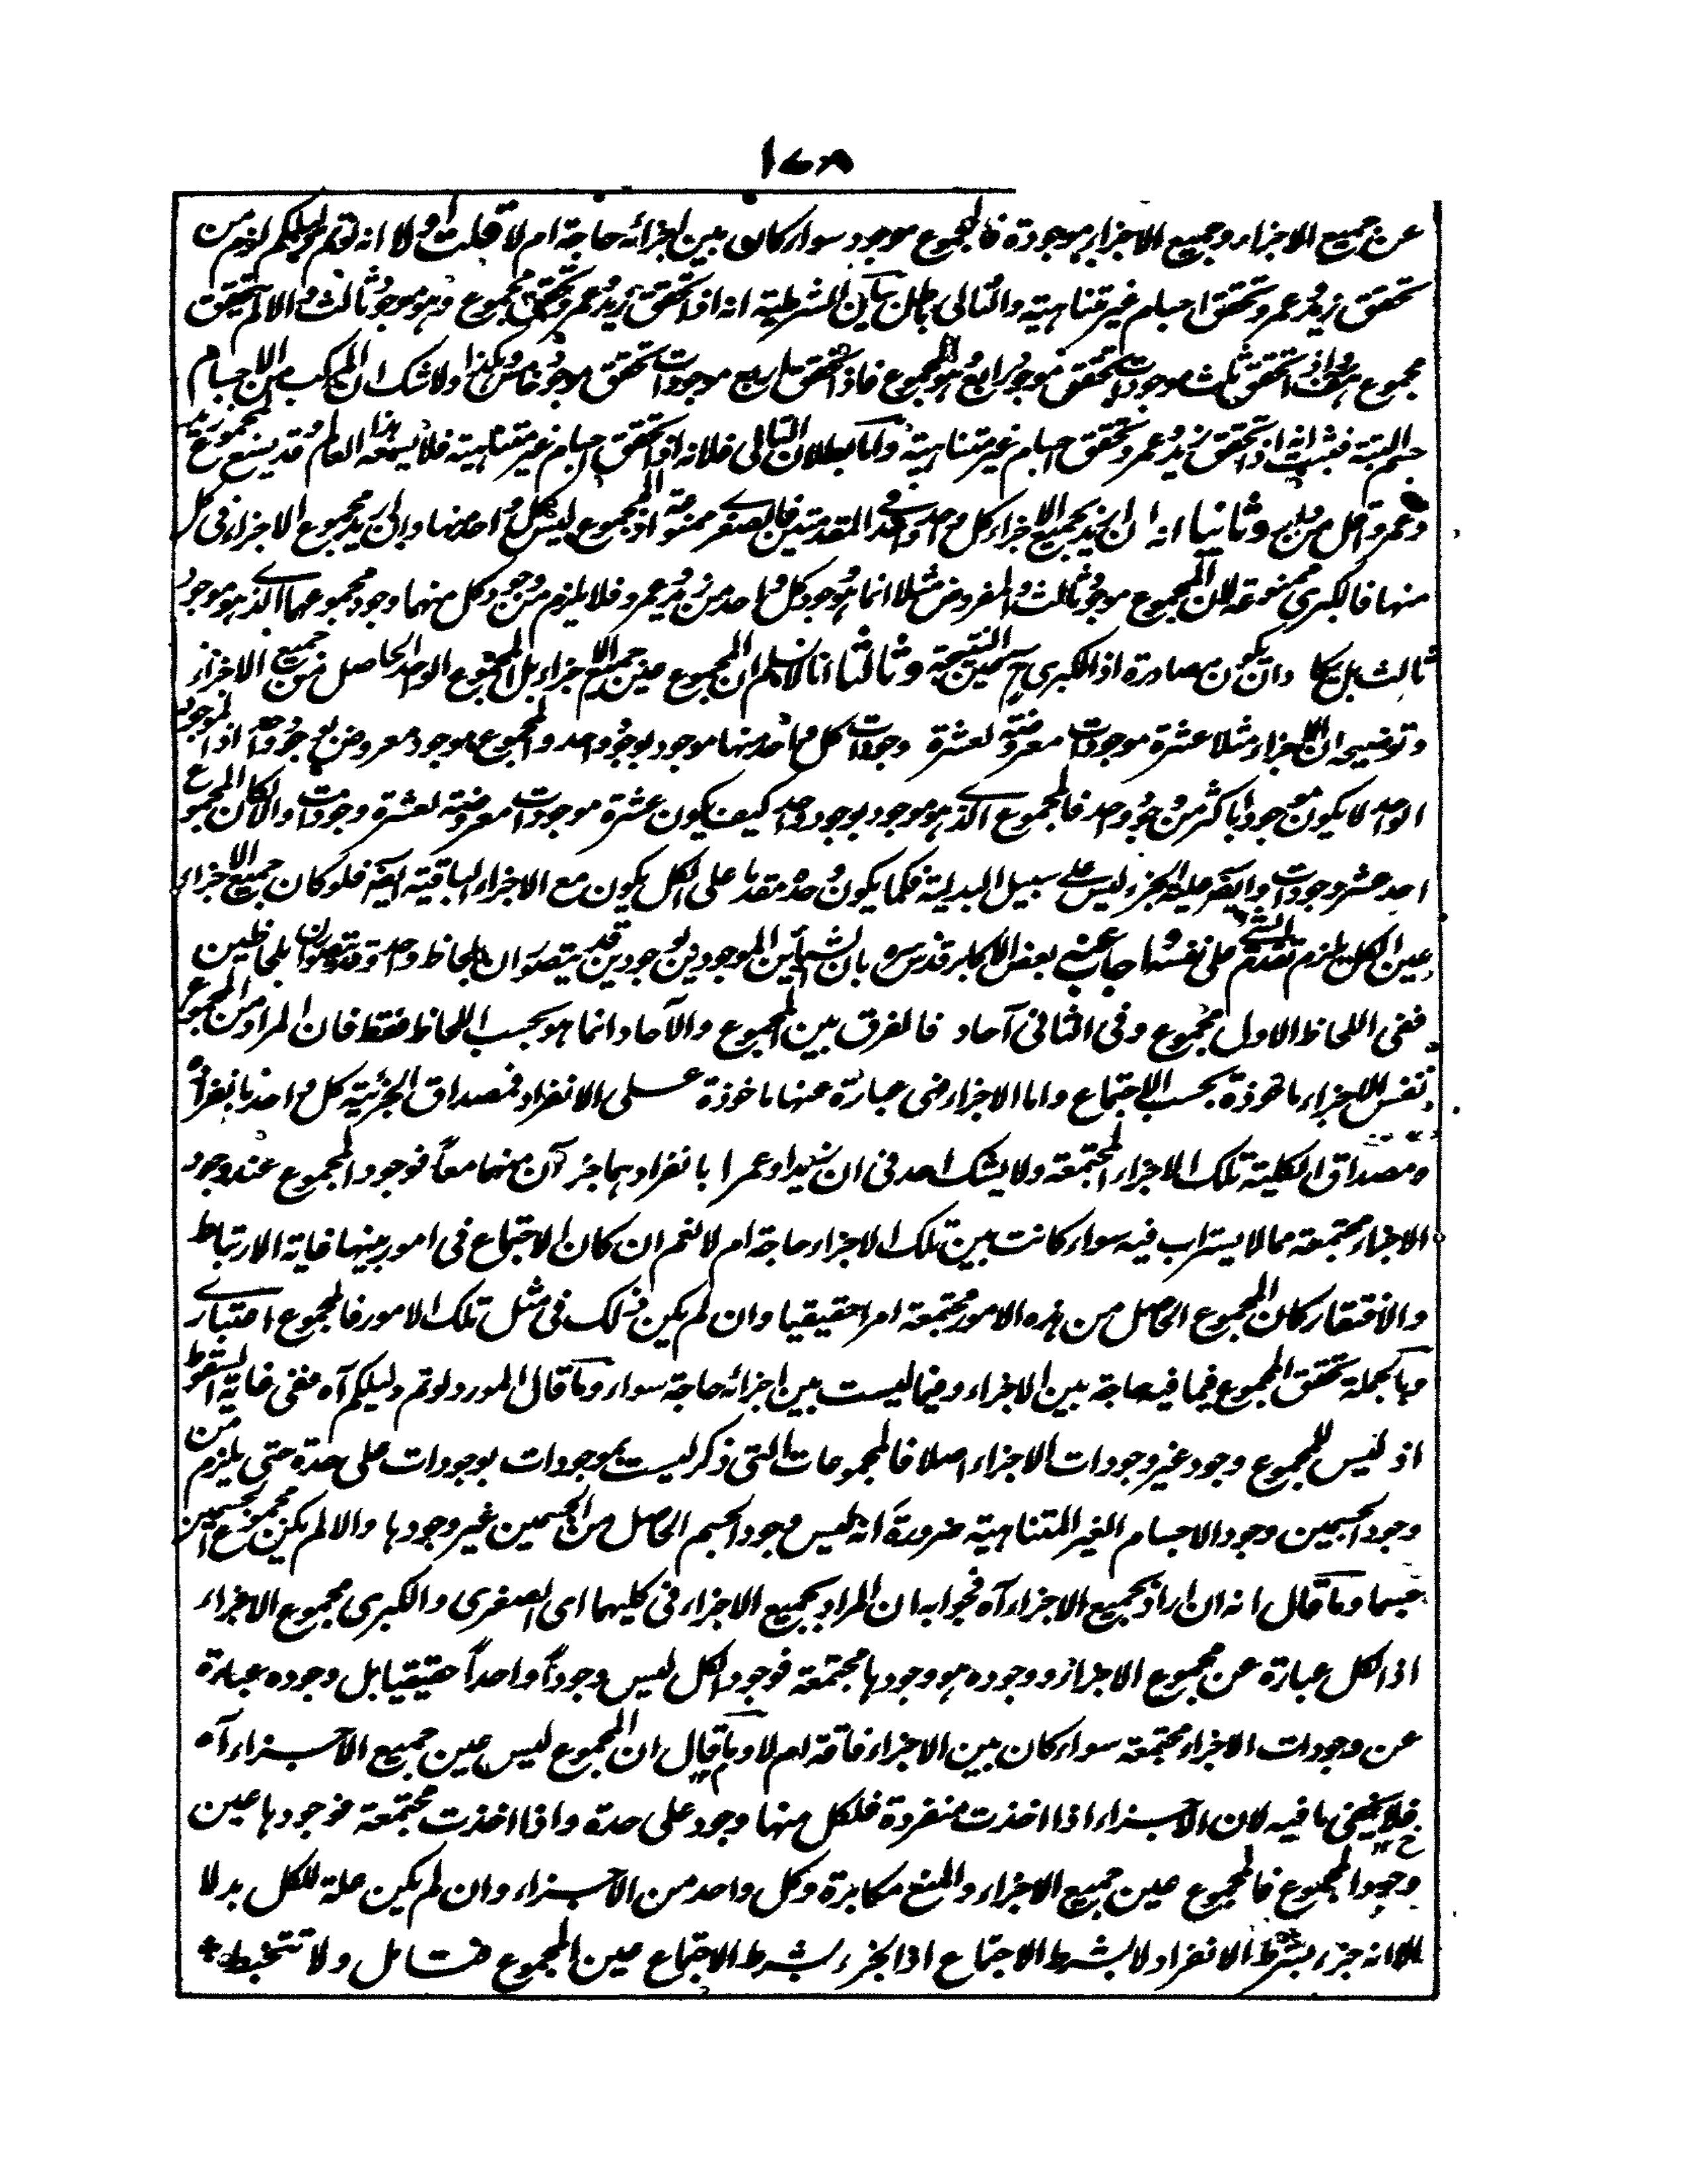 ١٧٨
عن جميع الاجزاء وجميع الاجزاء موجودة فالمجموع موجود سواء كان بين اجزائه حاجة ام لا قلت اولا انه لو تم دليلكم لزم من
تحقق زيد وعمرو تحقق اجسام غير متناهية والتالى باطل بيان الشرطية انه اذا تحقق زيد وعمرو تحقق مجموع وهو موجود ثالث والا لم يتحقق
مجموع هف واذا تحقق ثلث موجودات تحقق موجود رابع هو المجموع فاذا تحقق اربع موجودات تحقق موجود خامس وهكذا ولا شك ان المركب من الاجسام
جسم البتة فثبت انه اذا تحقق زيد وعمرو تحقق اجسام غير متناهية واما بطلان التالى فلانه اذا تحقق اجسام غير متناهية فلا يسعه هذا العالم وقد يسع مجموع زيد
وعمرو اقل من وثانيا انه ان اريد بجميع الاجزاء كل واحد واحد فى المقدمتين فالصغرى ممنوعة اذ المجموع ليس كل واحد منها وان اريد مجموع الاجزاء فى كل
منها فالكبرى ممنوعة لان المجموع موجود ثالث والمفروض مثلا انما هو وجود كل واحد من زيد وعمرو فلا يلزم من وجود كل منها وجود مجموعهما الذى هو موجود
ثالث بل يكاد ان يكون مصادرة اذ الكبرى ح عين النتيجة وثالثا انا لا نسلم ان المجموع عين جميع الاجزاء بل المجموع الواحد الحاصل من جميع الاجزاء
وتوضيحه ان الاجزاء مثلا عشرة موجودات معروضة لعشرة وجودات كل واحد منها موجود بوجود واحد والمجموع موجود معروض لوجود واحد اذ الموجود
الواحد لا يكون موجودا باكثر من وجود واحد فالمجموع الذى هو موجود بوجود واحد كيف يكون عشرة موجودات معروضة لعشرة وجودات والا لكان المجموع
احد عشر وجودات وايضا علية الجزء ليس على سبيل البدلية فكما يكون وحده متقدما على الكل يكون مع الاجزاء الباقية ايضا فلو كان جميع الاجزاء
عين الكل يلزم تقدم الشئ على نفسه واجاب عنه بعض الاكابر قدس سره بان الشيئين الموجودين بوجودين قد يتصوران بلحاظ واحد وقد يتصوران بلحاظين
ففى اللحاظ الاول مجموع وفى الثانى آحاد فالفرق بين المجموع والآحاد انما هو بحسب اللحاظ فقط فان المراد من المجموع
نفس الاجزاء ماخوذة بحسب الاجتماع واما الاجزاء فهى عبارة عنها ماخوذة على الانفراد فمصداق الجزئية كل واحد بانفراده
ومصداق الكلية تلك الاجزاء المجتمعة ولا يشك احد فى ان زيدا وعمرا بانفرادهما جزآن منهما معا فوجود المجموع عند وجود
الاجزاء مجتمعة مما لا يستراب فيه سواء كانت بين تلك الاجزاء حاجة ام لا نعم ان كان الاجتماع فى امور بينها غاية الارتباط
والافتقار كان المجموع الحاصل من هذه الامور مجتمعة امرا حقيقيا وان لم يكن ذلك فى مثل تلك الامور فالمجموع اعتبارى
وبالجملة تحقق المجموع فيما فيه حاجة بين الاجزاء وفيما ليست بين اجزائه حاجة سواء وما قال المورد لو تم دليلكم آه ففى غاية السقوط
اذ ليس للمجموع وجود غير وجودات الاجزاء اصلا فالمجموعات التى ذكر ليست بموجودات بوجودات على حدة حتى يلزم من
وجود الجسمين وجود الاجسام الغير المتناهية ضرورة انه ليس وجود الجسم الحاصل من الجسمين غير وجودها والا لم يكن مجموع الجسمين
جسما وما قال انه ان اراد بجميع الاجزاء آه فجوابه ان المراد بجميع الاجزاء فى كليهما اى الصغرى والكبرى مجموع الاجزاء
اذ الكل عبارة عن مجموع الاجزاء ووجوده هو وجودها مجتمعة فوجود الكل ليس وجودا واحدا حقيقيا بل وجوده عبارة
عن وجودات الاجزاء مجتمعة سواء كان بين الاجزاء فاقة ام لا وما قال ان المجموع ليس عين جميع الاجزاء آه
فلا يخفى ما فيه لان الاجزاء اذا اخذت منفردة فلكل منها وجود على حدة واذا اخذت مجتمعة فوجودها عين
وجود المجموع فالمجموع عين جميع الاجزاء والمنع مكابرة وكل واحد من الاجزاء وان لم يكن علة للكل بدلا
الا انه جزء بشرط الانفراد لا بشرط الاجتماع اذ الجزء بشرط الاجتماع عين المجموع فتامل ولا تتخبط